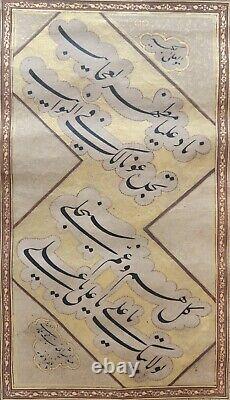 ناد علیا مظهر العجایب
تجده عونا لک فی النوایب
کل هم و غم سینجلی
بولایتک یا علی یا علی یا علی
worthpoint.com